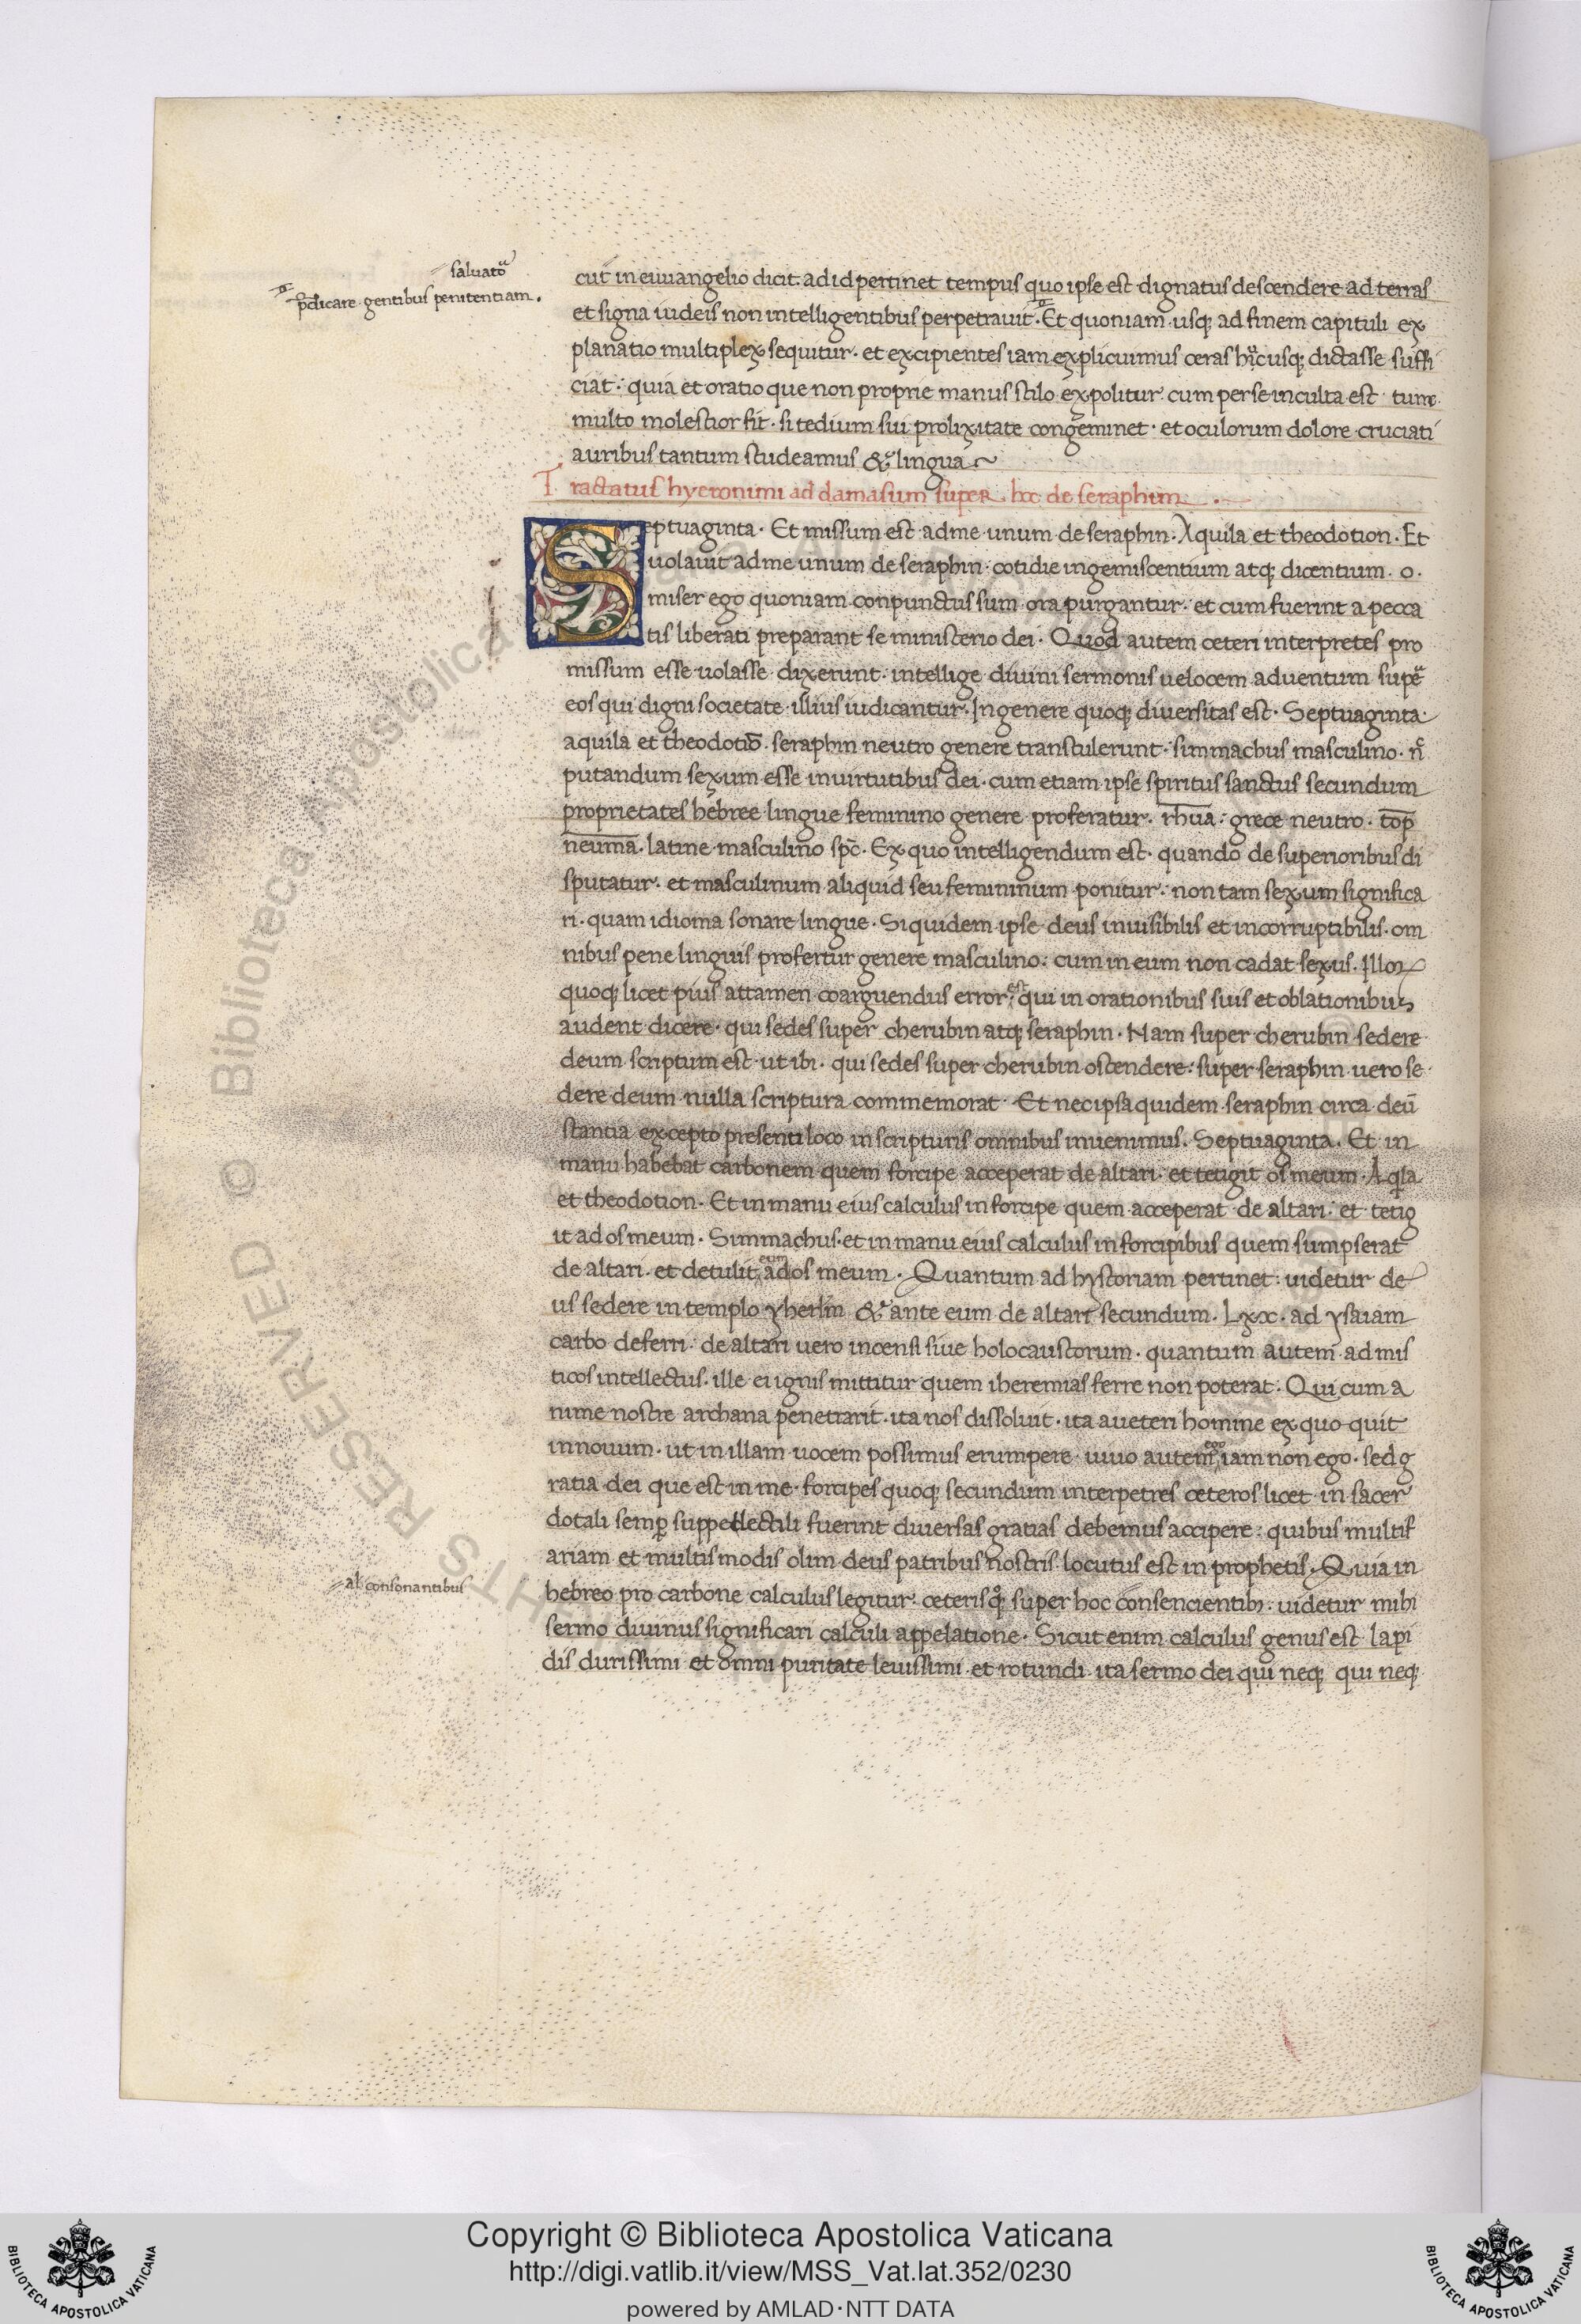 saluator
predicare gentibus penitentiam.
cut in euuangelio dicit. ad id pertinet tempus quo ipse est dignatus descendere ad terras
et signa iudeis non intelligentibus perpetrauit. Et quoniam usq; ad finem capituli ex
planatio multiplex sequitur. et excipientes iam explicuimus ceras hucusq; dictasse suffi
ciat: quia et oratio que non proprie manus stilo expolitur cum per se inculta est tunc
multo molestior fit. si tedium sui prolixitate congeminet. et oculorum dolore cruciati
auribus tantum studeamus & lingua
Tractatus hyeronimi ad damasum super hoc de seraphim
Septuaginta. Et missum est ad me unum de seraphin. Aquila et theodotion. Et
uolauit ad me unum de seraphin. cotidie ingemiscentium atq; dicentium. o.
miser ego quoniam conpunctus sum. ora purgantur. et cum fuerint a pecca
tis liberati preparant se ministerio dei. Quod autem ceteri interpretes pro
missum esse uolasse dixerunt. intellige diuini sermonis uelocem aduentum super
eos qui digni societate illius iudicantur. In genere quoq; diuersitas est. Septuaginta.
aquila et theodotiō. seraphin neutro genere transtulerunt. simmachus masculino. n̄
putandum sexum esse in uirtutibus dei. cum etiam ipse spiritus sanctus secundum
proprietates hebree lingue feminino genere proferatur. rhua. grece neutro. top
neuma. latine masculino spc̄. Ex quo intelligendum est. quando de superioribus di
sputatur. et masculinum aliquid seu femininum ponitur. non tam sexum significa
ri. quam idioma sonare lingue. Siquidem ipse deus inuisibilis et incorruptibilis. om
nibus pene linguis profertur genere masculino. cum in eum non cadat sexus. Illor
quoq; licet pius attamen coarguendus error est qui in orationibus suis et oblationibus
audent dicere. qui sedes super cherubin atq; seraphin. Nam super cherubin sedere
deum scriptum est ut ibi. qui sedes super cherubin ostendere. super seraphin uero se
dere deum nulla scriptura commemorat. Et nec ipsa quidem seraphin circa deū
stantia excepto presenti loco in scripturis omnibus inuenimus. Septuaginta. Et in
manu habebat carbonem quem forcipe acceperat de altari. et tetigit os meum. Aqla
et theodotion. Et in manu eius calculus in forcipe quem acceperat de altari. et tetig
it ad os meum. Simmachus. et in manu eius calculus in forcipibus quem sumpserat
de altari. et detulit eum ad os meum. Quantum ad hystoriam pertinet. uidetur de
us sedere in templo yherlm̄ & ante eum de altari secundum. Lxx. ad ysaiam
carbo deferri. de altari uero incensi siue holocaustorum. quantum autem ad mis
ticos intellectus. ille ei ignis mittitur quem iheremias ferre non poterat. Qui cum a
nime nostre archana penetrarit. ita nos dissoluit. ita a ueteri homine ex quo quit
in nouum. ut in illam uocem possimus erumpere. uiuo autem ego iam non ego. sed g
ratia dei que est in me. forcipes quoq; secundum interpetres ceteros licet in sacer
dotali semp suppellectili fuerint diuersas gratias debemus accipere. quibus multif
ariam et multis modis olim deus patribus nostris locutus est in prophetis. Quia in
al consonantibus
hebreo pro carbone calculus legitur. ceterisq; super hoc consencientib;. uidetur mihi
sermo diuinus significari calculi appelatione. Sicut enim calculus genus est lapi
dis durissimi et omni puritate leuissimi et rotundi. ita sermo dei qui neq; qui neq;
Biblioteca Apostolica
RIGHTS RESERVED ©
Copyright © Biblioteca Apostolica Vaticana
http://digi.vatlib.it/view/MSS_Vat.lat.352/0230
powered by AMLAD·NTT DATA
BIBLIOTECA APOSTOLICA VATICANA
BIBLIOTECA APOSTOLICA VATICANA